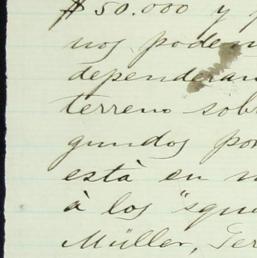 $50.000 y p
nos podem
dependeran
terreno sobr
gundos por
està en
à los "squa
Müller, Ger